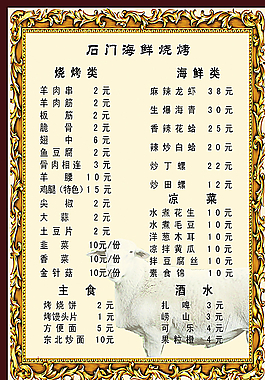 石门海鲜烧烤
烧烤类
羊肉串 2元
羊肉筋 2元
板筋 2元
脆骨 2元
翅中 6元
鱼豆腐 2元
骨肉相连 3元
羊腰 10元
鸡腿(特色) 15元
尖椒 2元
大蒜 2元
土豆片 2元
韭菜 10元/份
香菜 10元/份
金针菇 10元/份
主食
烤烧饼 2元
烤馒头片 1元
方便面 5元
东北炒面 10元
海鲜类
麻辣龙虾 38元
生爆海青 30元
香辣花蛤 25元
辣炒白蛤 20元
炒丁螺 22元
炒田螺 12元
凉菜
水煮花生 10元
水煮毛豆 10元
洋葱木耳 10元
凉拌黄瓜 10元
拌豆腐丝 10元
素食锦 10元
酒水
扎啤 3元
崂山 3元
可乐 4元
果粒橙 4元